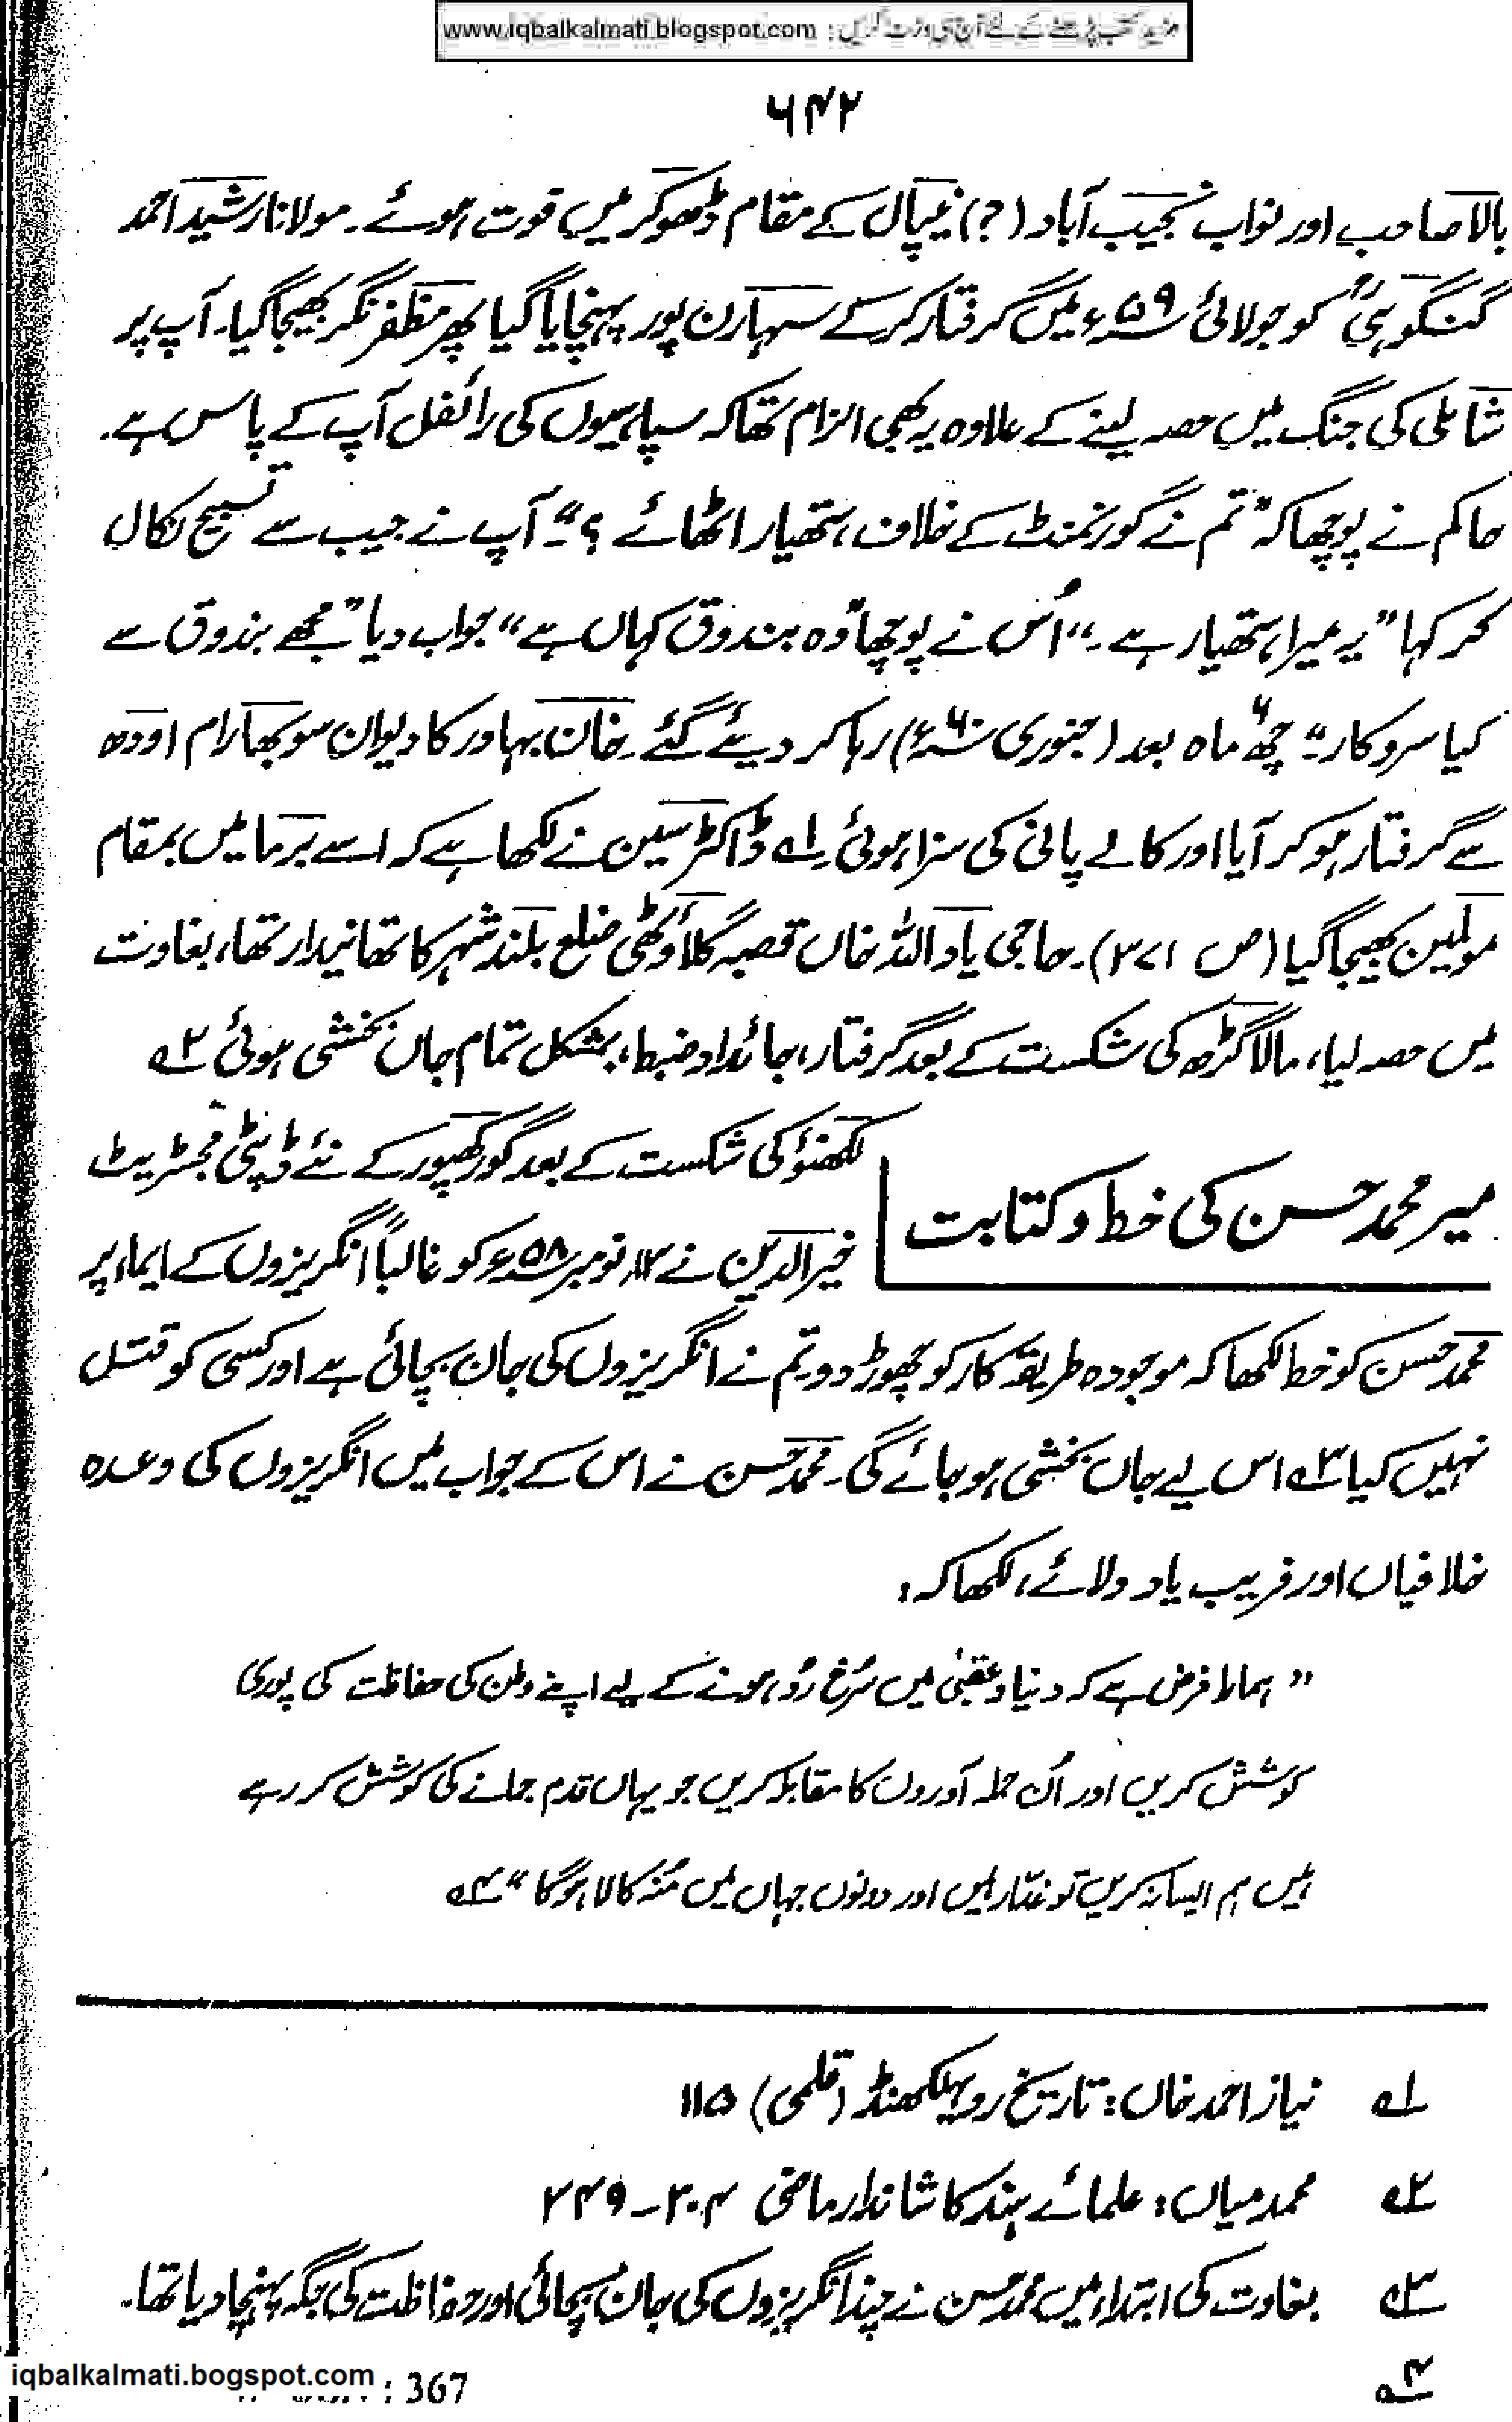 www.iqbalkalmati.blogspot.com : مزید کتب پڑھنے کے لئے آج ہی وزٹ کریں
۶۴۲
بالا صاحب اور نواب نجیب آباد (؟) نیپال کے مقام ڈھوکر میں فوت ہوئے۔ مولانا رشید احمد
گنگوہیؒ کو جولائی ۵۹ء میں گرفتار کر کے سہارن پور پہنچایا گیا پھر مظفر نگر بھیجا گیا۔ آپ پر
شاملی کی جنگ میں حصہ لینے کے علاوہ یہ بھی الزام تھا کہ سپاہیوں کی رائفل آپ کے پاس ہے۔
حاکم نے پوچھا کہ "تم نے گورنمنٹ کے خلاف ہتھیار اٹھائے؟"۔ آپ نے جیب سے تسبیح نکال
کر کہا "یہ میرا ہتھیار ہے۔" اُس نے پوچھا "وہ بندوق کہاں ہے" جواب دیا "مجھے بندوق سے
کیا سروکار"۔ چھ۶ ماہ بعد (جنوری ۶۰ء) رہا کر دیئے گئے۔ خان بہادر کا دیوان سوبھا رام اودھ
سے گرفتار ہو کر آیا اور کالے پانی کی سزا ہوئی۔ ۱؎ ڈاکٹر سین نے لکھا ہے کہ اسے برما میں بمقام
مولمین بھیجا گیا (ص ۳۷۱)۔ حاجی یاد اللہ خاں قصبہ گلاؤٹھی ضلع بلند شہر کا تھانیدار تھا، بغاوت
میں حصہ لیا، مالا گڑھ کی شکست کے بعد گرفتار، جائداد ضبط، بمشکل تمام جاں بخشی ہوئی ۲؎
میر محمد حسن کی خط و کتابت
لکھنؤ کی شکست کے بعد گورکھپور کے نئے ڈپٹی مجسٹریٹ
خیر الدین نے ۱۲ نومبر ۵۸ء کو غالباً انگریزوں کے ایماء پر
محمد حسن کو خط لکھا کہ موجودہ طریقۂ کار کو چھوڑ دو۔ تم نے انگریزوں کی جان بچائی ہے اور کسی کو قتل
نہیں کیا ۳؎ اس لیے جاں بخشی ہو جائے گی۔ محمد حسن نے اس کے جواب میں انگریزوں کی وعدہ
خلافیاں اور فریب یاد دلائے، لکھا کہ:
"ہمارا فرض ہے کہ دنیا و عقبیٰ میں سُرخ رُو ہونے کے لیے اپنے وطن کی حفاظت کی پوری
کوشش کریں اور اُن حملہ آوروں کا مقابلہ کریں جو یہاں قدم جمانے کی کوشش کر رہے
ہیں ہم ایسا نہ کریں تو غدّار ہیں اور دونوں جہاں میں مُنہ کالا ہوگا" ۴؎
۱؎ نیاز احمد خاں: تاریخ روہیلکھنڈ (قلمی) ۱۱۵
۲؎ محمد میاں: علمائے ہند کا شاندار ماضی ۳۰۴-۲۴۹
۳؎ بغاوت کی ابتداء میں محمد حسن نے چند انگریزوں کی جان بچائی اور حفاظت کی جگہ پہنچا دیا تھا۔
۴؎ : 367
iqbalkalmati.bogspot.com